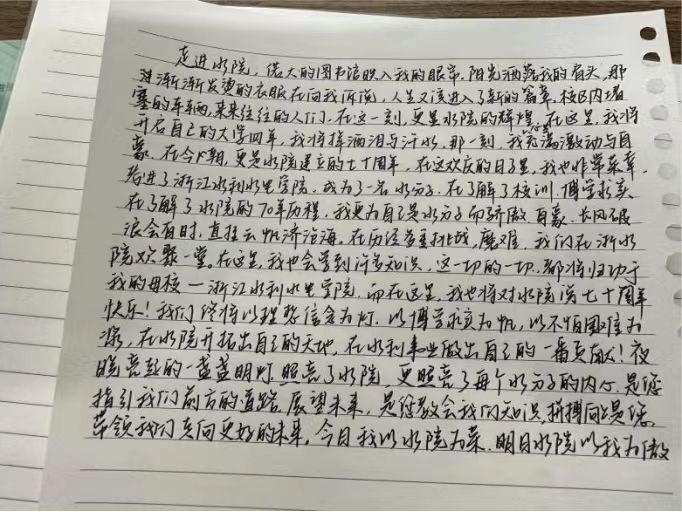 走进水院，偌大的图书馆映入我的眼帘，阳光洒落我的肩头，那
渐渐发烫的衣服在向我诉说，人生又该进入了新的篇章，校区内堵
塞的车辆，来来往往的人们，在这一刻，更显水院的辉煌，在这里，我将
开启自己的大学四年，我将挥洒泪与汗水，那一刻，我充满激动与自
豪。在今朝，更是水院建立的七十周年，在这欢庆的日子里，我也非常荣幸，
进了浙江水利水电学院，成为了一名水分子，在了解了校训，博学求真
在了解了水院的70年历程，我更为自己是水分子而骄傲自豪。长风破
浪会有时，直挂云帆济沧海，在历经多重挑战，磨难，我们在浙水
院欢聚一堂。在这里，我也会学到许多知识，这一切的一切，都将归功于
我的母校一浙江水利水电学院，而在这里，我也将对水院说七十周年
快乐！我们终将以理想信念为灯，以博学求真为帆，以不怕困难为
桨，在水院开拓出自己的天地，在水利事业做出自己的一番贡献！夜
晚亮起的一盏盏明灯，照亮了水院，更照亮了每个水分子的内心，是您
指引我们前方的道路，展望未来，是您教会我们知识，拼搏向上是您
带领我们走向更好的未来，今日我以水院为荣，明日水院以我为傲